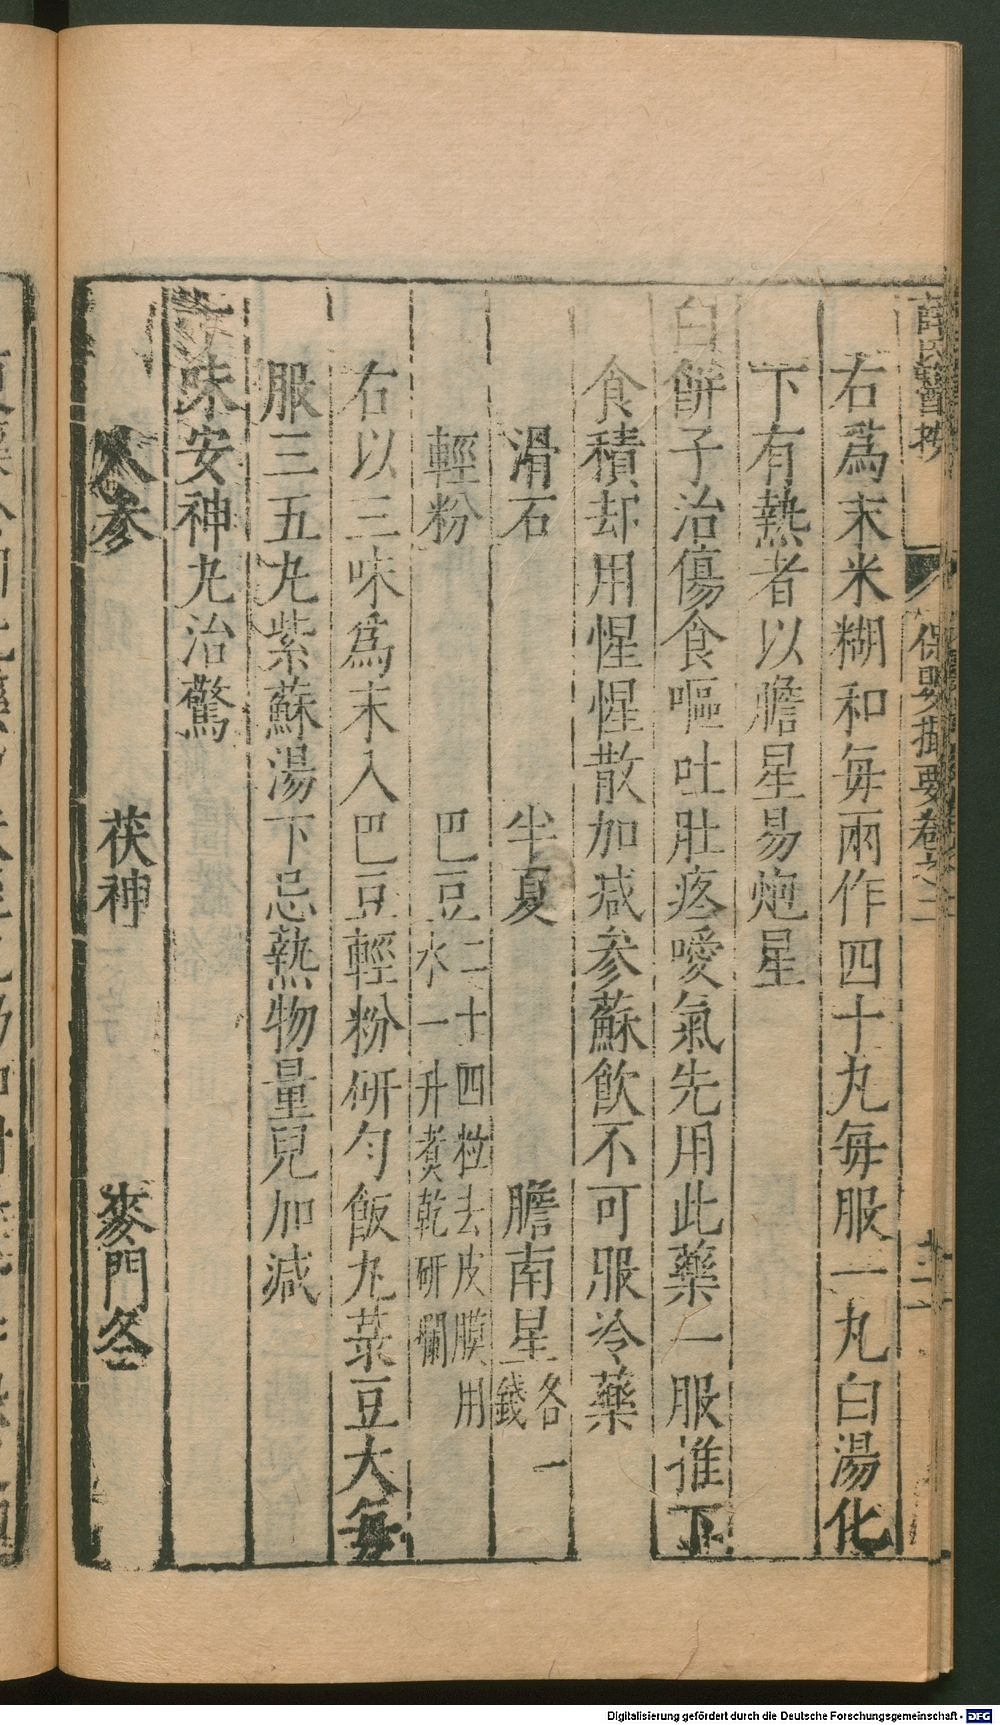 薛氏醫按 保嬰撮要卷之二
右爲末米糊和每兩作四十丸每服一丸白湯化
下有熱者以膽星易炮星
白餅子治傷食嘔吐肚疼噯氣先用此藥一服推下
食積却用惺惺散加减参蘇飲不可服冷藥
滑石 半夏 膽南星各一錢
輕粉 巴豆二十四粒去皮膜用水一升煑乾研爛
右以三味爲末入巴豆輕粉研勻飯丸菉豆大每
服三五丸紫蘇湯下忌熱物量兒加减
味安神丸治驚
人参 茯神 麥門冬
Digitalisierung gefördert durch die Deutsche Forschungsgemeinschaft - DFG